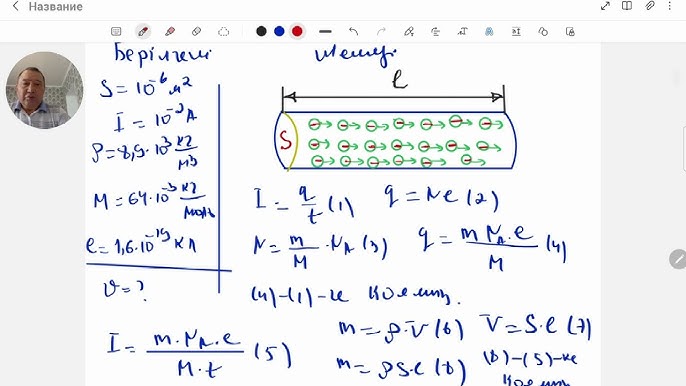 Название
Берілгені Шешуі
S = 10⁻⁶ м²
I = 10⁻² А
ρ = 8,9·10³ кг/м³
M = 64·10⁻³ кг/моль
e = 1,6·10⁻¹⁹ Кл
υ = ?
l
S
I = q/t (1) q = Ne (2)
N = m/M · N_A (3) q = m N_A·e/M (4)
(4)-(1)-ке қоямыз.
I = m·N_A·e/M·t (5)
m = ρ·V (6) V = S·l (7)
m = ρSl (8) (8)-(5)-ке
қоямыз